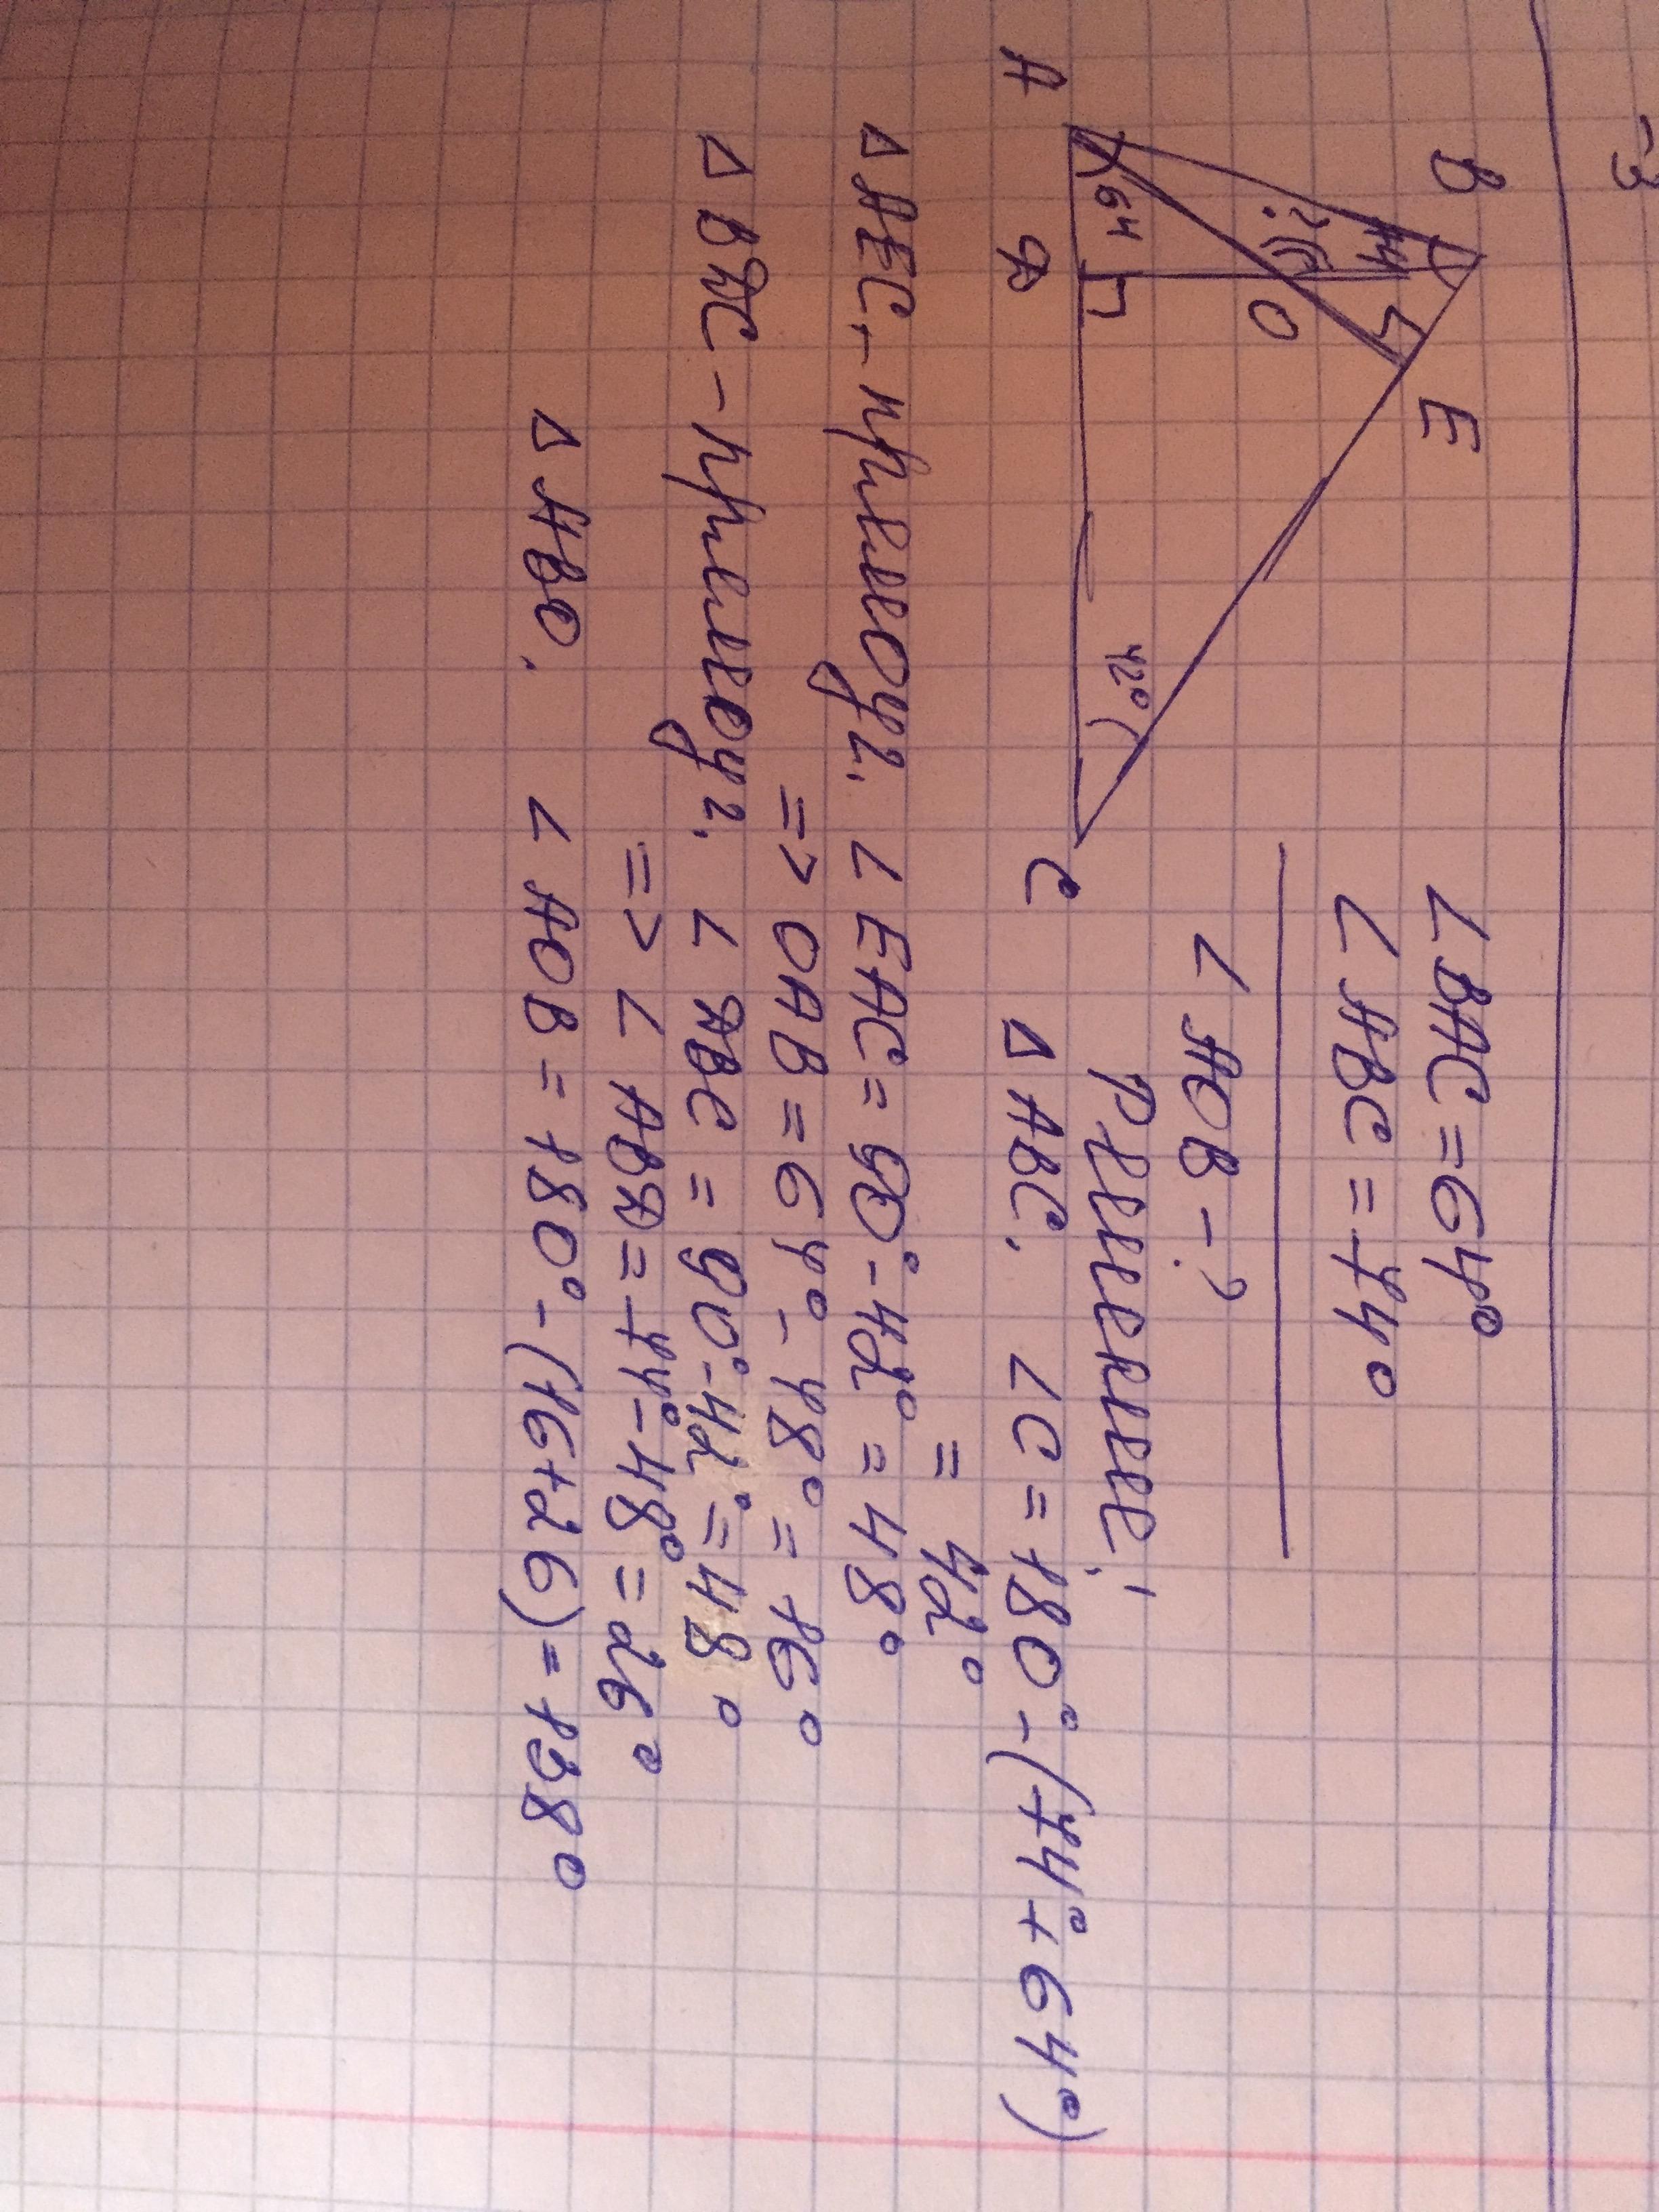 -3
B
E
A
Д
O
C
64
74
?
42°
∠BAC = 64°
∠ABC = 74°
∠AOB - ?
Решение:
△ABC. ∠C = 180° - (74° + 64°)
= 42°
△AEC, - прямоуг. ∠EAC = 90° - 42° = 48°
=> OAB = 64° - 48° = 16°
△BДC - прямоуг. ∠ДBC = 90° - 42° = 48°
=> ∠ABД = 74° - 48° = 26°
△ABO. ∠AOB = 180° - (16 + 26) = 138°